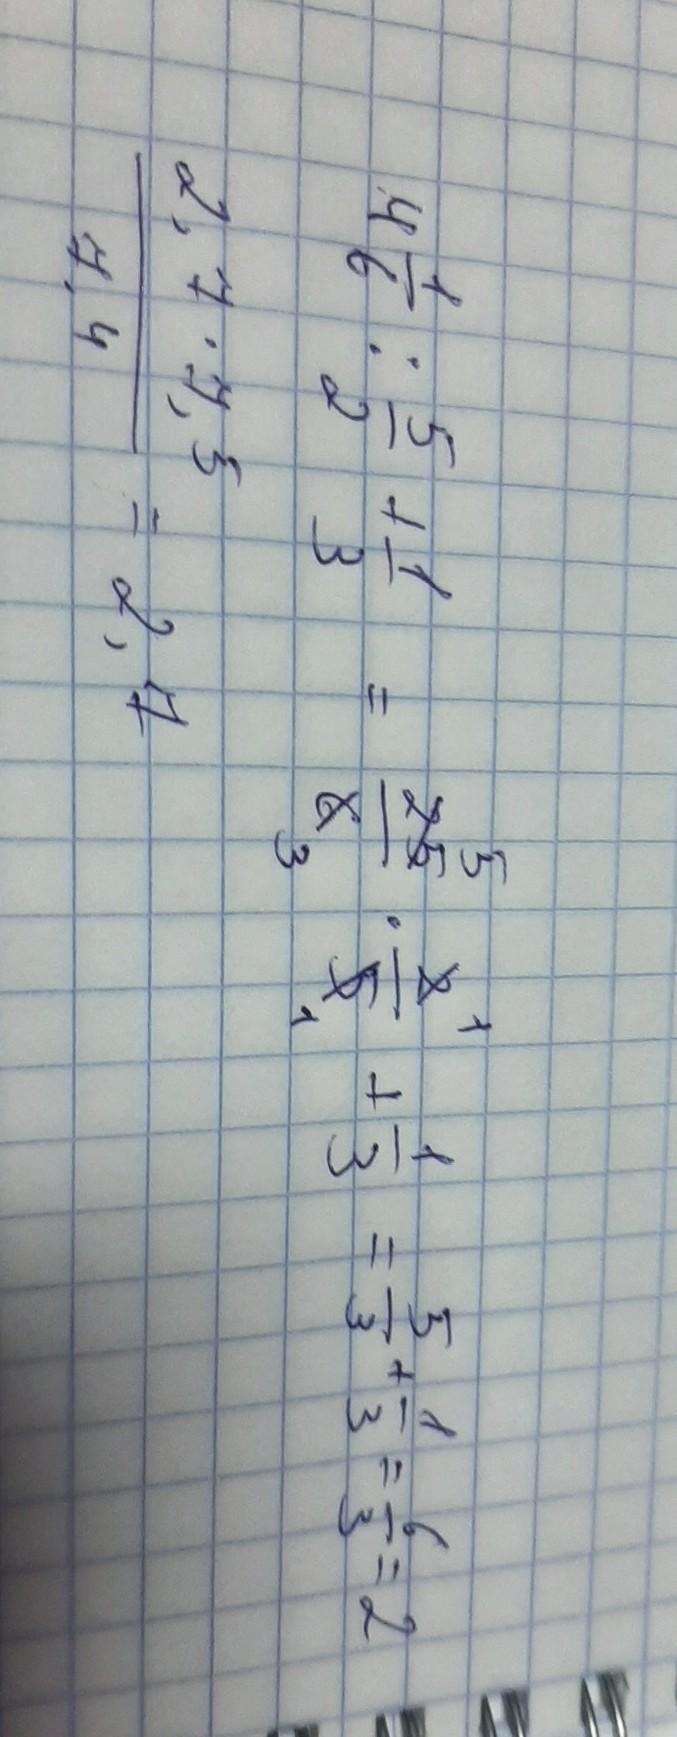 4 1/6 : 5/2 + 1/3 = 25 5/6 3 · 2 1/5 1 + 1/3 = 5/3 + 1/3 = 6/3 = 2
2,7 · 7,5 / 7,4 = 2,7